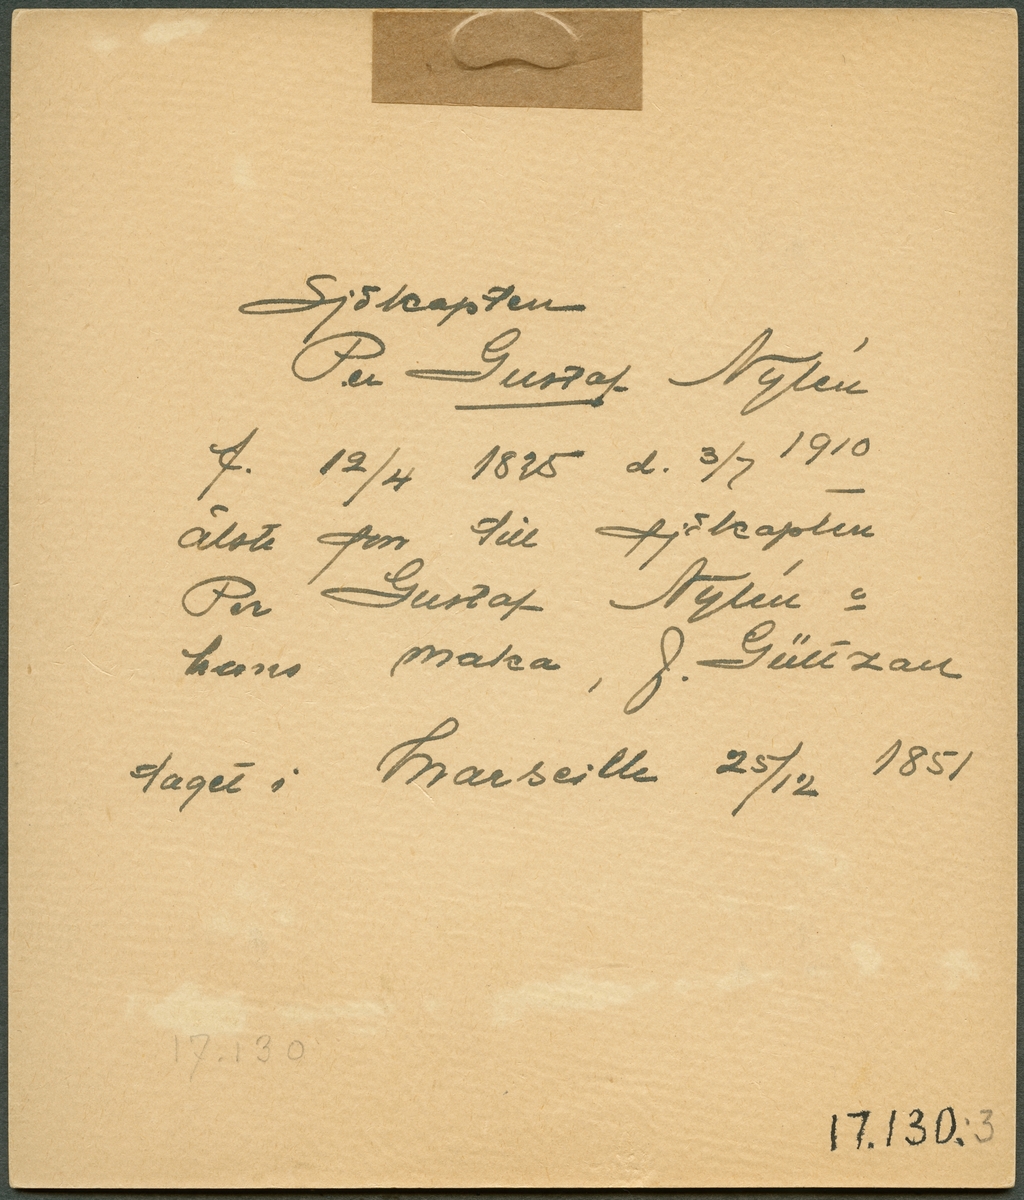 Sjökapten
Per Gustaf Nylén
f. 12/4 1825 d. 3/7 1910
älste son till sjökapten
Per Gustaf Nylén o
hans maka, J. Güttzau
taget i Marseille 25/12 1851
17.130
17.130:3